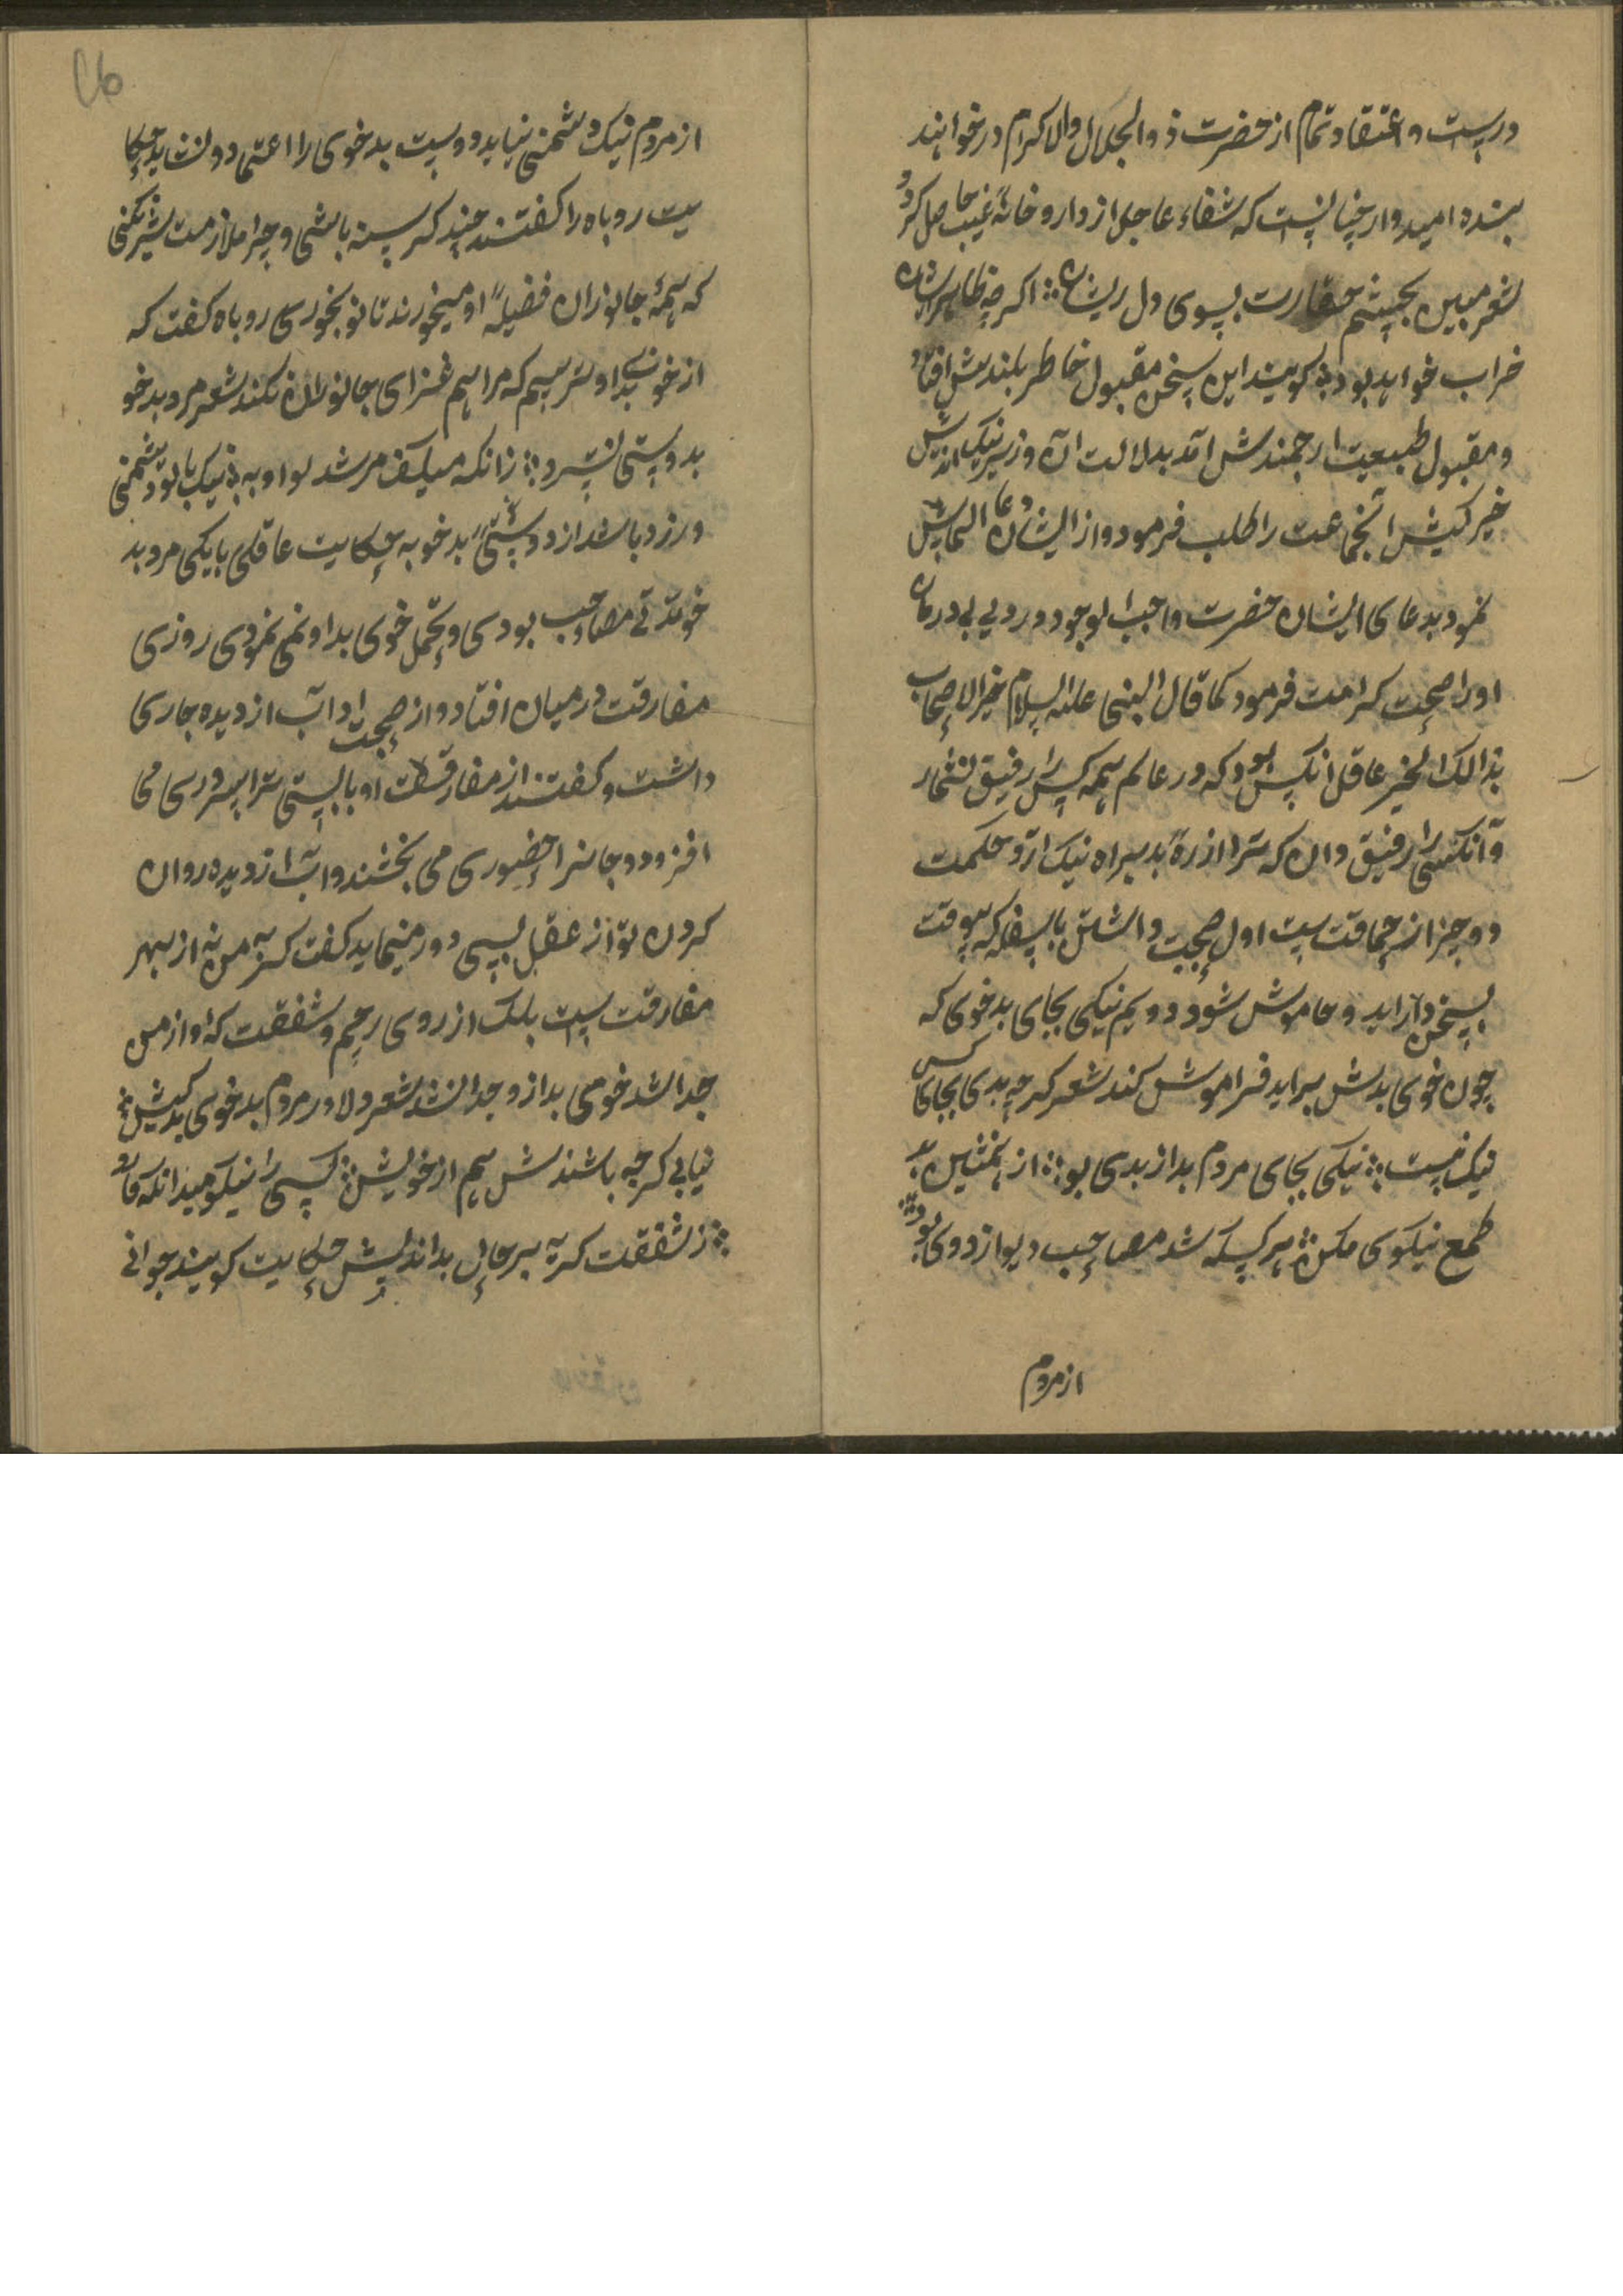 درست و اعتقاد تمام از حضرت ذو الجلال والاکرام درخواهند
بنده امیدوار چنانست که شفاء عاجل از دارو خانهٔ غیب حاصل کردد
شعر مبین بچشم حقارت بسوی دل ریشان اکرچه ظاهرایشان
خراب خواهد بود کویند این سخن مقبول خاطر بلندش افتاد
و مقبول طبیعت ارجمندش آمد بدلالت آن وزیر نیک اندیش
خیر کیش آنجماعت را طلب فرمود و از ایشان دعا التماس
نمود بدعای ایشان حضرت واجب الوجود درد بی درمان
اورا صحت کرامت فرمود کما قال النبی علیه السلام خیر الاصحاب
بذالک الخیر عاقل آنکس بود که در عالم همه کس را رفیق نشمارد
و آنکسی را رفیق دان که ترا از رهٔ بد براه نیک آرد حکمت
دو چیز از حماقت است اول صحبت داشتن با سفله که بیوقت
بسخن دراید و خاموش شود دویم نیکی بجای بدخوی که
چون خوی بدش براید فراموش کند شعر کرچه بدی بجای کس
نیک نیست نیکی بجای مردم بد از بدی بود از همنشین بد
طمع نیکوی مکن هر کسکه شد مصاحب دیو از ددی بود
از مردم
از مردم نیک دشمنی نیاید و دوست بدخوی را اعتماد و لنشاید حکا
یت روباه را کفتند چند کرسنه باشی و چرا ملازمت شیر نکنی
که همهٔ جانوران فضیلهٔ او میخورند تا تو بخوری روباه کفت که
از خوی بد او ترسیم که مرا هم غزای جانوران نکند شعر مرد بدخو
بدوستی نسزد زانکه میلش مرشد لو او به نیک با تو دشمنی
ورزد باشد از دوستیٔ بدخو به حکایت عاقلی با یکی مرد بد
خو مدتی مصاحب بودی و تحمل خوی بد او نمی نمودی روزی
مفارقت درمیان افتاد و از صحبت او آب از دیده جاری
داشت و کفتند از مفارقت او بایستی ترا سروری می
افزود و جانرا حضوری می بخشند و آب از دیده روان
کردن تو از عقل بسی دور مینماید کفت کریهٔ من نه از بهر
مفارقتست بلک از روی رحم و شفقت که او از من
جدا شد خوی بد از و جدا نشد شعر دلا در مردم بدخوی بدکیش
نیابی کرچه باشندش هم از خویش کسی را نیکو میدانکه کارد
ز شفقت کریه بر حال بداندیش حکایت کویند جوانی